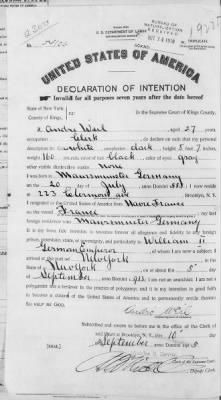 U. S. DEPARTMENT OF LABOR
BUREAU OF
NATURALIZATION
RECEIVED
UNITED STATES OF AMERICA
DECLARATION OF INTENTION
Invalid for all purposes seven years after the date hereof
State of New York,
County of Kings,
In the Supreme Court of Kings County.
I, Andre Weil, aged 27 years,
occupation Clerk, do declare on oath that my personal
description is: Color white, complexion dark, height 5 feet 7 inches,
weight 160 pounds, color of hair black, color of eyes gray
other visible distinctive marks none
I was born in Maursmunster Germany
on the 20 day of July, anno Domini 1 888; I now reside
at 223 Clermont ave, Brooklyn, N. Y.
I emigrated to the United States of America from Havre France
on the vessel France; my last
foreign residence was Maursmunster Germany
It is my bona fide intention to renounce forever all allegiance and fidelity to any foreign
prince, potentate, state, or sovereignty, and particularly to William II
German Emperor, of whom I am now a subject; I
arrived at the port of New York, in the
State of New York, on or about the 5 day
of September, anno Domini 1 913; I am not an anarchist; I am not a
polygamist nor a believer in the practice of polygamy; and it is my intention in good faith
to become a citizen of the United States of America and to permanently reside therein:
SO HELP ME GOD.
Andre Weil
Subscribed and sworn to before me in the office of the Clerk of
said Court at Brooklyn, N. Y., this 10 day
of September, anno Domini 191 5
[SEAL.]